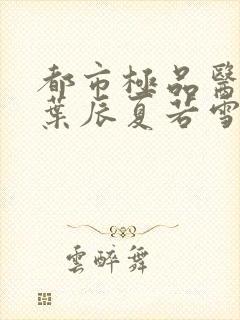 都市極品醫
葉辰夏若雪
雲醉舞